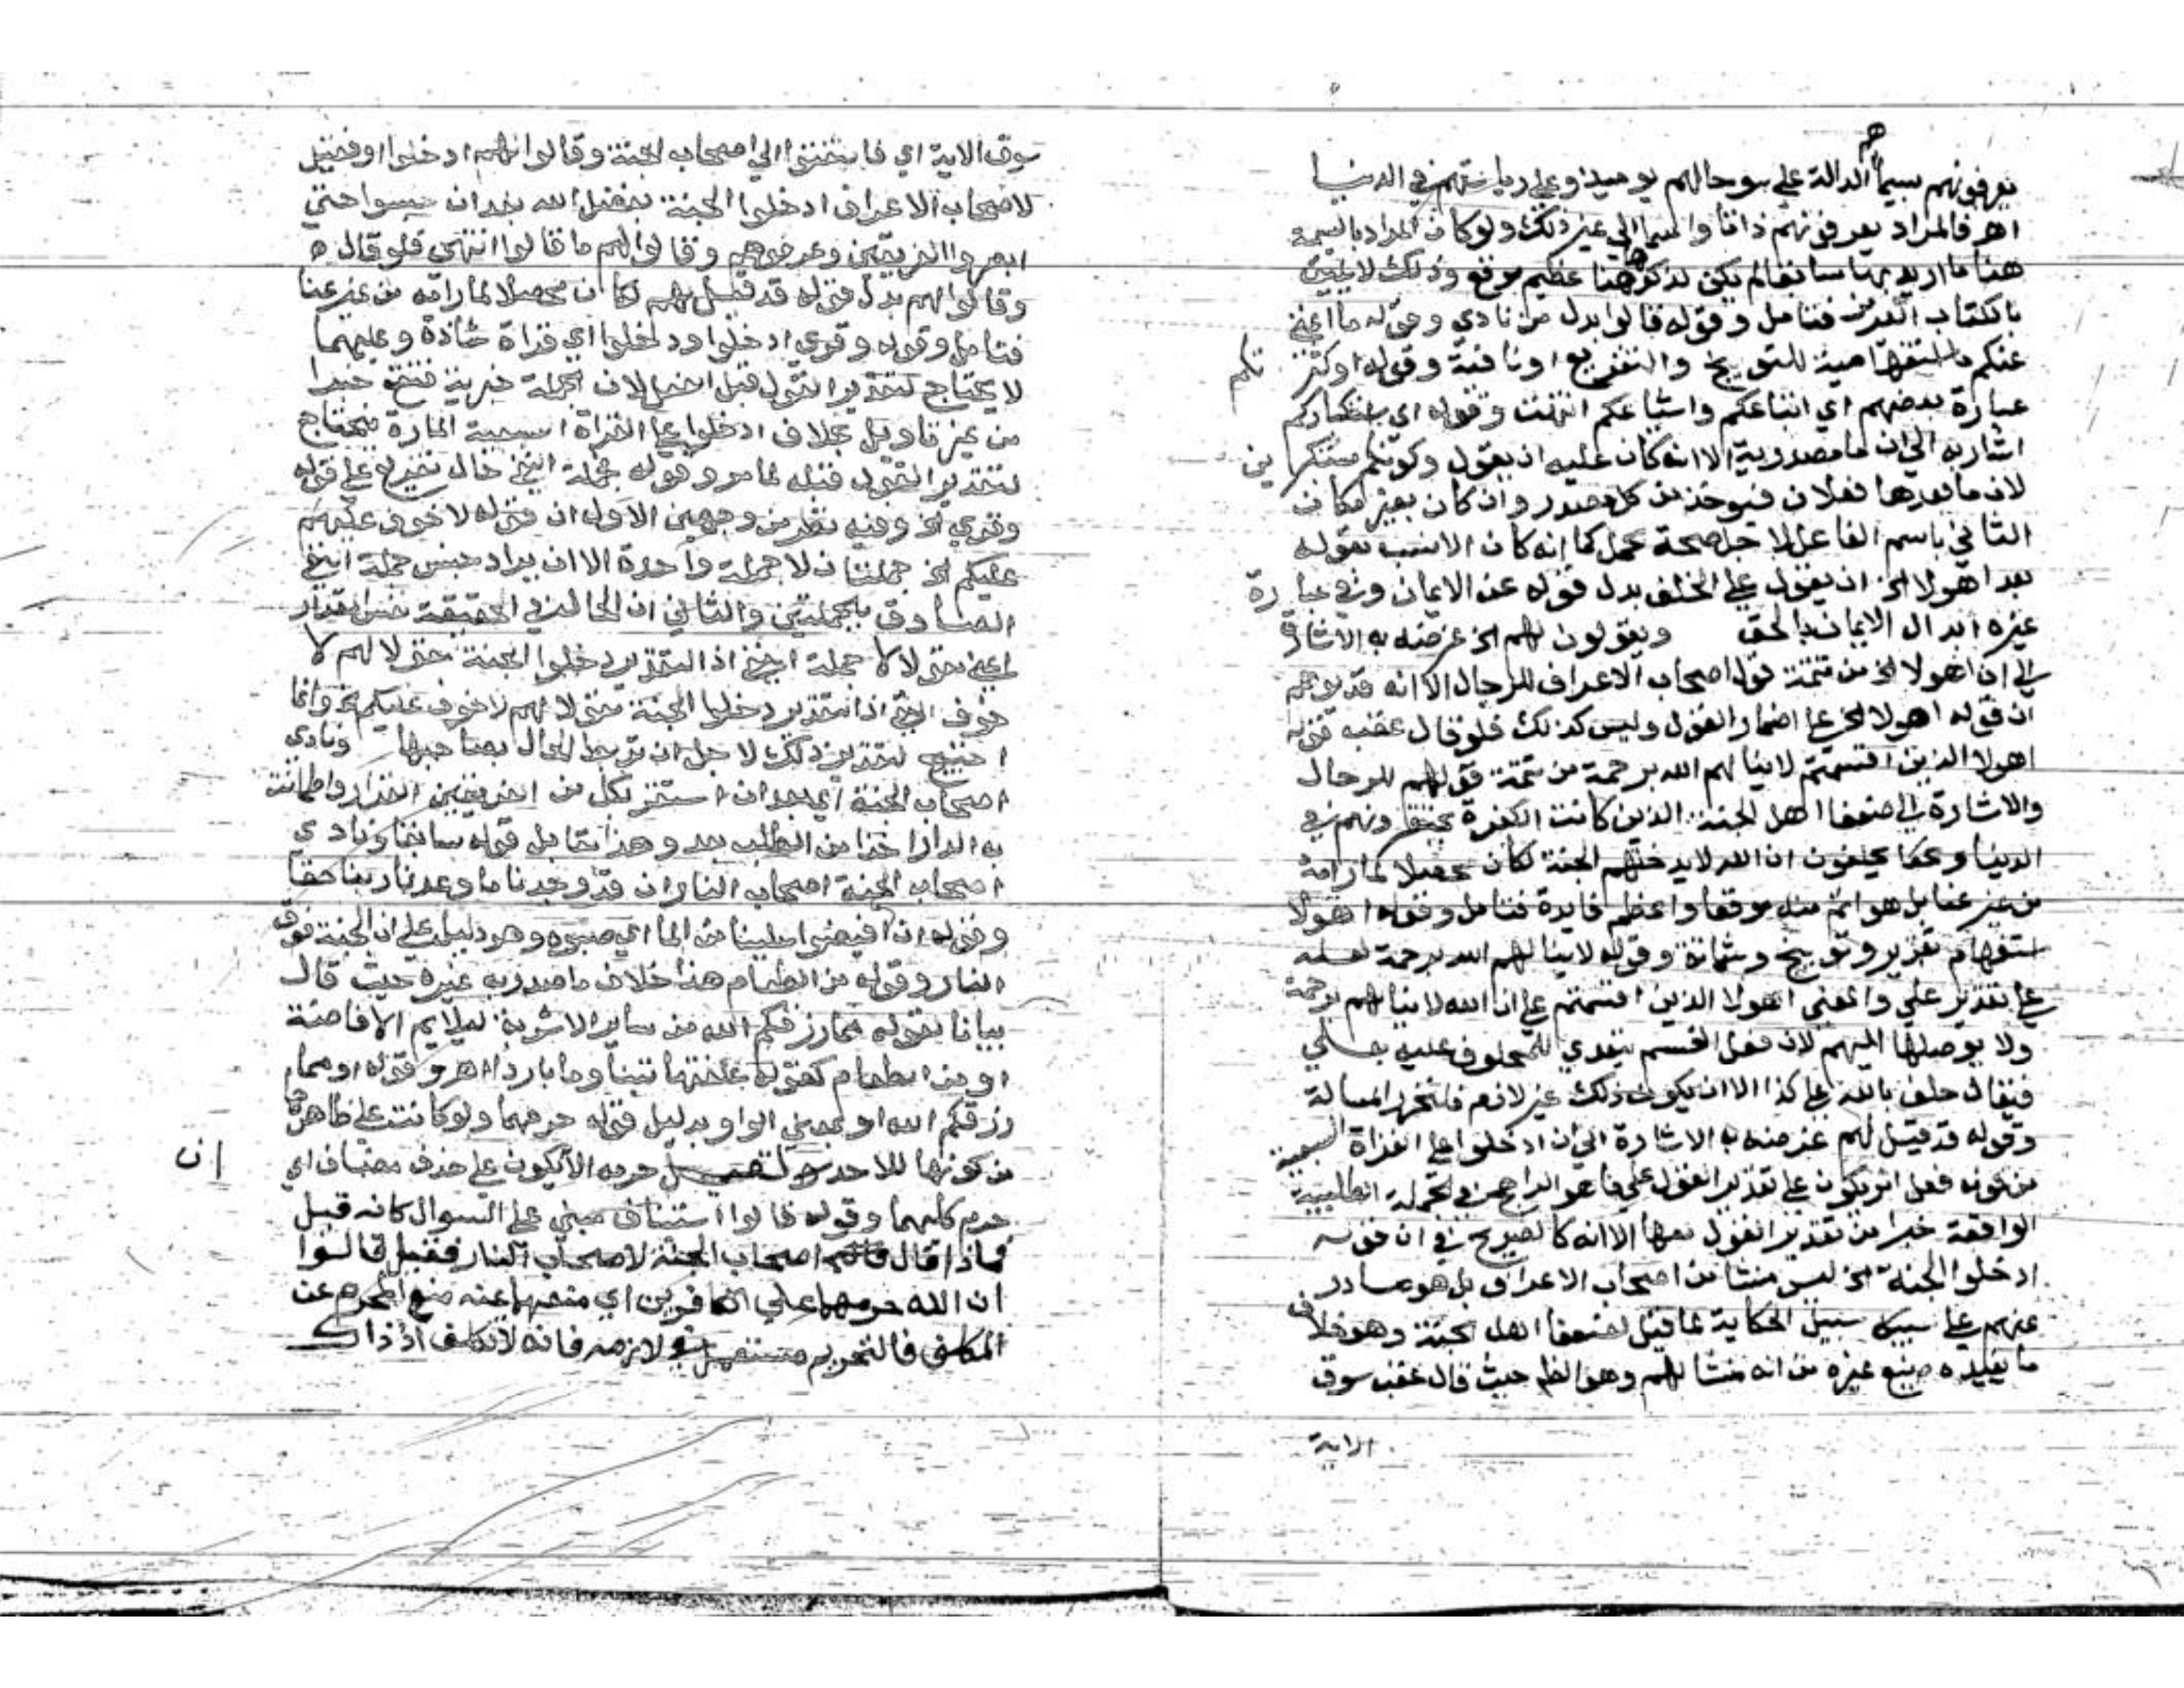 يعرفونهم بسيماهم الدالة على سوحالهم يوميذ وعلى رياستهم في الدنيا
اهر فالمراد يعرفونهم ذاتا والسيما الي غير ذلك ولو كان المراد بالسيمة
هنا ما اريد بها سابقا لم يكن لذكرها هنا عظيم موقع وذلك لا يليق
بالكتاب العزيز فتامل وقوله قالوا بدل من نادي وقوله ما اغني
عنكم ما استفهامية للتوبيخ والتقريع او نافية وقوله او كثرتكم
عبارة بعضهم اي اتباعكم واشياعكم انتهت وقوله اي باستكباركم
اشار به الي ان ما مصدرية الا انه كان عليه ان يقول وكونكم مستكبرين
لان ما بعدها فعلان فيوخذ من كل مصدر وان كان بعير مكان
الثاني باسم الفاعل لا جل صحة عمل كما انه كان الانسب بقوله
بعد اهولا الخ ان يقول علي الخلف بدل قوله عن الايمان وفي عبارة
غيره ابدال الايمان بالحق ويقولون لهم الخ غرضه به الاشارة
الي ان اهولا الخ من تتمة قول اصحاب الاعراف للرجال الا انه قد يوهم
ان قوله اهولا الخ علي اضمار القول وليس كذلك فلو قال عقب قوله
اهولا الذين اقسمتم لا ينالهم الله برحمة من تتمة قولهم للرجال
والاشارة الي ضعفا اهل الجنة الذين كانت الكفرة يحتقرونهم في
الدنيا وكما يحلفون ان الله لا يدخلهم الجنة لكان محصلا لما رامه
من غير عنا بل هو اتم منه موقعا واعظم فايدة فتامل وقوله اهولا
استفهام تقرير وتوبيخ وشماتة وقوله لا ينالهم الله برحمة لعله
علي تقدير علي والمعني اهولا الذين اقسمتم علي ان الله لا ينالهم برحمة
ولا يوصلها اليهم لان فعل القسم يتعدي للمحلوف عليه بعلي
فيقال حلف بالله علي كذا الا ان يكون ذلك غير لازم فلتحرر المسالة
وقوله قد قيل لهم غرضه به الاشارة الي ان ادخلوا علي القراة السبعية
من كونه فعل امر يكون علي تقدير القول علي ما هو الراجح في الجملة الطلبية
الواقعة خبرا من تقدير القول معها الا انه كالصريح في ان قوله
ادخلوا الجنة الخ ليس منشا من اصحاب الاعراف بل هو صادر
عنهم علي سبيل الحكاية لما قيل لضعفا اهل الجنة وهو خلاف
ما يفيده صنيع غيره من انه منشا لهم وهو الظ حيث قال عقب سوق
الاية
سوق الاية اي فالتفتوا الي اصحاب الجنة وقالوا لهم ادخلوا او فقيل
لاصحاب الاعراف ادخلوا الجنة بفضل الله بعد ان حبسوا حتي
ابصروا الفريقين وعرفوهم وقالوا لهم ما قالوا انتهي فلو قال ه
وقالوا لهم بدل قوله قد قيل لهم لكان محصلا لما رامه من غير عنا
فتامل وقوله وقري ادخلوا ودخلوا اي قراة شاذة وعليهما
لا يحتاج لتقدير القول قبل الفعل لان الجملة خبرية فتقع خبرا
من غير تاويل بخلاف ادخلوا علي القراة السبعية المارة فيحتاج
لتقدير القول قبله لما مر وقوله فجملة النفي حال تفريع علي قوله
وقري الخ وفيه نظر من وجهين الاول ان قوله لا خوف عليهم
عليكم الخ جملتان لا جملة واحدة الا ان يراد جنس جملة النفي
الصادق بجملتين والثاني ان الحال في الحقيقة نفس المقدار
اعني مقولا لا جملة النفي اذ التقدير دخلوا الجنة مقولا لهم لا
خوف النفي اذ التقدير دخلوا الجنة مقولا لهم لا خوف عليكم الخ وانما
احتيج لتقدير ذلك لا جل ان تربط الحال بصاحبها ونادي
اصحاب الجنة اي بعد ان استقر بكل من الفريقين القرار واطمانت
به الدار اخذا من الطلب بعد وهذا مقابل قوله سابقا ونادي
اصحاب الجنة اصحاب النار ان قد وجدنا ما وعدنا ربنا حقا
وقوله ان افيضوا علينا من الما اي صبوه وهو دليل علي ان الجنة فوق
النار وقوله من الطعام هذا خلاف ما صدر به غيره حيث قال
بيانا لقوله مما رزقكم الله من ساير الاشربة ليلايم الافاضة
او من الطعام كقوله علفتها تبنا وما باردا اهر وقوله او مما
رزقكم الله او بمعني الواو بدليل قوله حرمهما ولو كانت علي ظاهرها
من كونها للاحد لقيل حرمه الا ان يكون علي حذف مضاف اي
حرم كليهما وقوله قالوا استيناف مبني علي السوال كانه قيل
فماذا قال اصحاب الجنة لاصحاب النار فقيل قالوا
ان الله حرمهما علي الكافرين اي منعهما عنه منع المحرم عن
المكلف فالتحريم مستعمل في لازمه فانه لا تكلف اذ ذاك